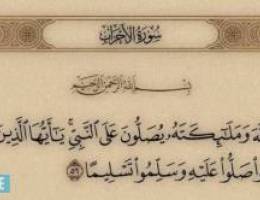 سُورَةُ الأَحْزَابِ
بِسْمِ اللَّهِ الرَّحْمَٰنِ الرَّحِيمِ
وَمَلَٰٓئِكَتَهُۥ يُصَلُّونَ عَلَى ٱلنَّبِيِّ ۚ يَٰٓأَيُّهَا ٱلَّذِينَ
صَلُّوا۟ عَلَيْهِ وَسَلِّمُوا۟ تَسْلِيمًا ﴿٥٦﴾